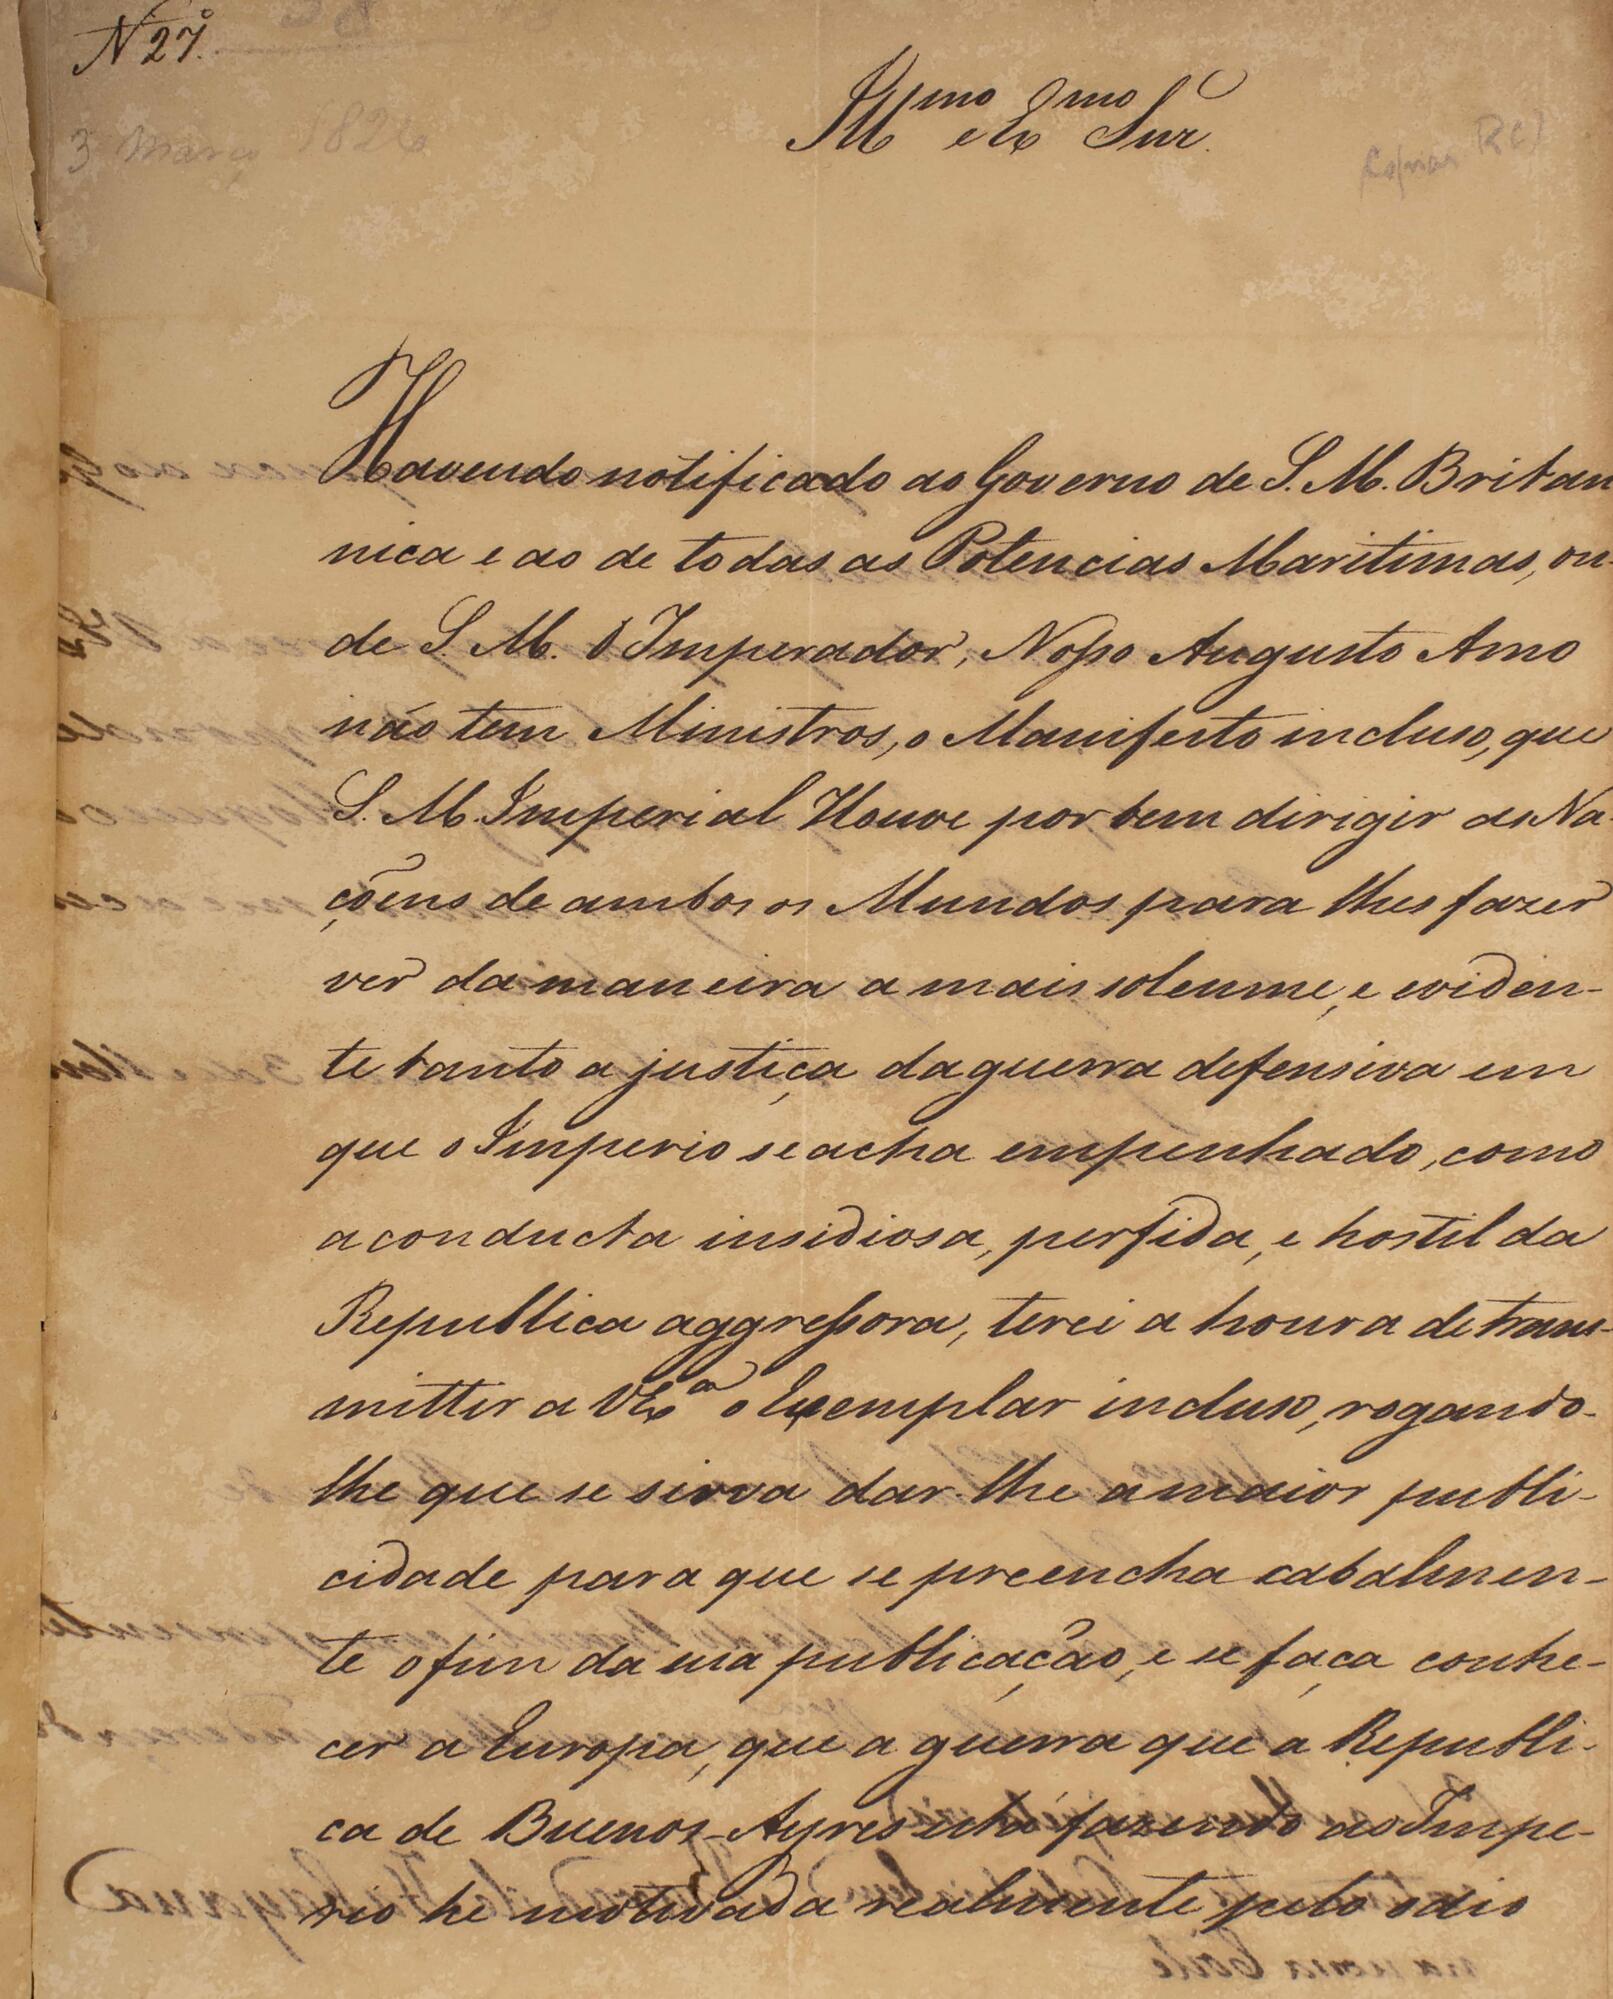 N.º 27.
3 Março 1826
Illmo e Exmo Snr.
Copiar
Havendo notificado ao Governo de S. M. Britan
nica e ao de todas as Potencias Maritimas, on-
de S. M. O Imperador, Nosso Augusto Amo
não tem Ministros, o Manifesto incluso, que
S. M. Imperial Houve por bem dirigir as Na-
çoens de ambos os Mundos para lhes fazer
ver da maneira a mais solemne, e eviden-
te tanto a justiça da guerra defensiva em
que o Imperio se acha empenhado, como
a conducta insidiosa, perfida, e hostil da
Republica aggressora, terei a honra de trans-
mittir a V. Exa o Exemplar incluso, rogando-
lhe que se sirva dar-lhe a maior publi-
cidade para que se preencha cabalmen-
te o fim da sua publicação, e se faça conhe-
cer a Europa, que a guerra que a Republi-
ca de Buenos-Ayres está fazendo ao Impe-
rio he motivada realmente pelo odio